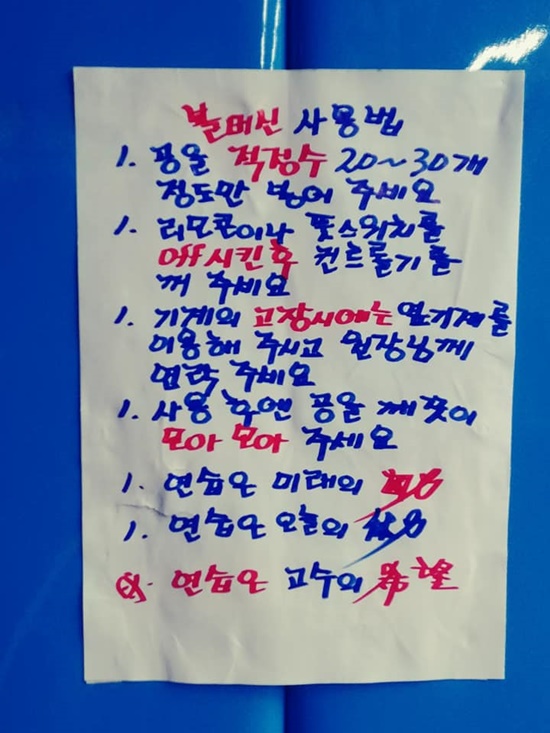 볼머신 사용법
1. 공을 적정수 20~30개
정도만 넣어 주세요
1. 리모콘이나 풋스위치를
off시킨후 컨트롤기를
꺼 주세요
1. 기계의 고장시에는 열기계를
이용해 주시고 원장님께
연락 주세요
1. 사용 후엔 공을 깨끗이
모아 모아 주세요
1. 연습은 미래의
1. 연습은 오늘의
연습은 고수의 希望